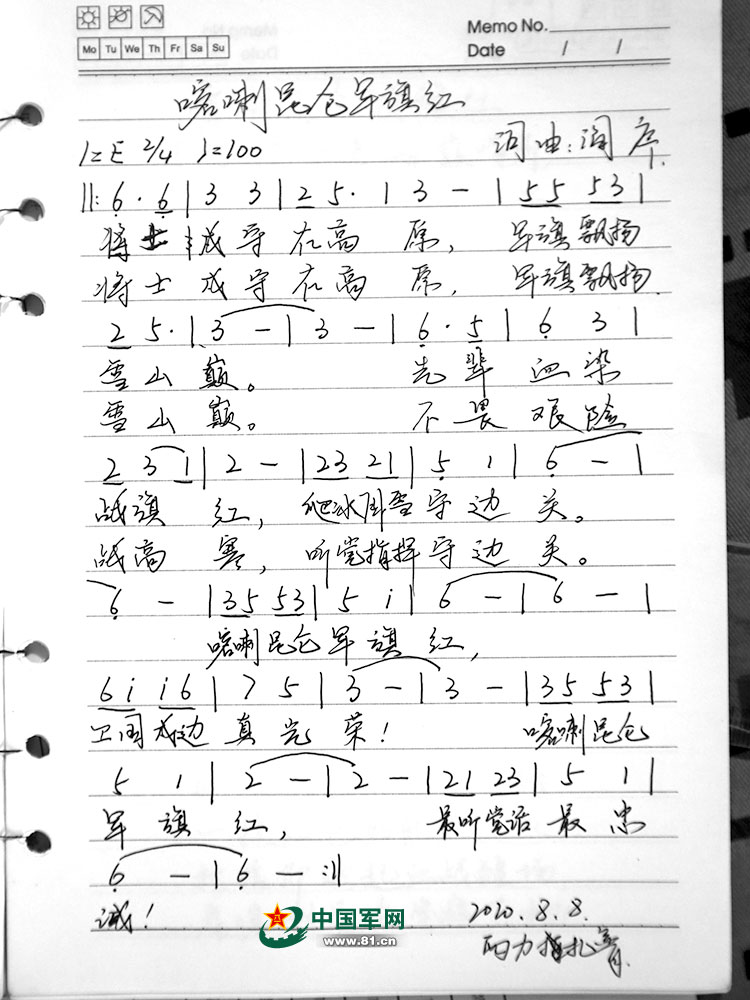 Memo No.
Mo Tu We Th Fr Sa Su
Date / /
喀喇昆仑军旗红
1=E 2/4 ♩=100 词曲:润序
‖: 6 · 6 | 3 3 | 2 5 · | 3 — | 5 5 5 3 |
将士戍守在高原, 军旗飘扬
将士戍守在高原, 军旗飘扬
2 5 · | 3 — | 3 — | 6 · 5 | 6 3 |
雪山巅。 先辈血染
雪山巅。 不畏艰险
2 3 1 | 2 — | 2 3 2 1 | 5 1 | 6 — |
战旗红, 爬冰卧雪守边关。
战高寒, 听党指挥守边关。
6 — | 3 5 5 3 | 5 i | 6 — | 6 — |
喀喇昆仑军旗红,
6 i i 6 | 7 5 | 3 — | 3 — | 3 5 5 3 |
卫国戍边真光荣! 喀喇昆仑
5 1 | 2 — | 2 — | 2 1 2 3 | 5 1 |
军旗红, 最听党话最忠
6 — | 6 — :‖
诚!
中国军网
www.81.cn
2020.8.8.